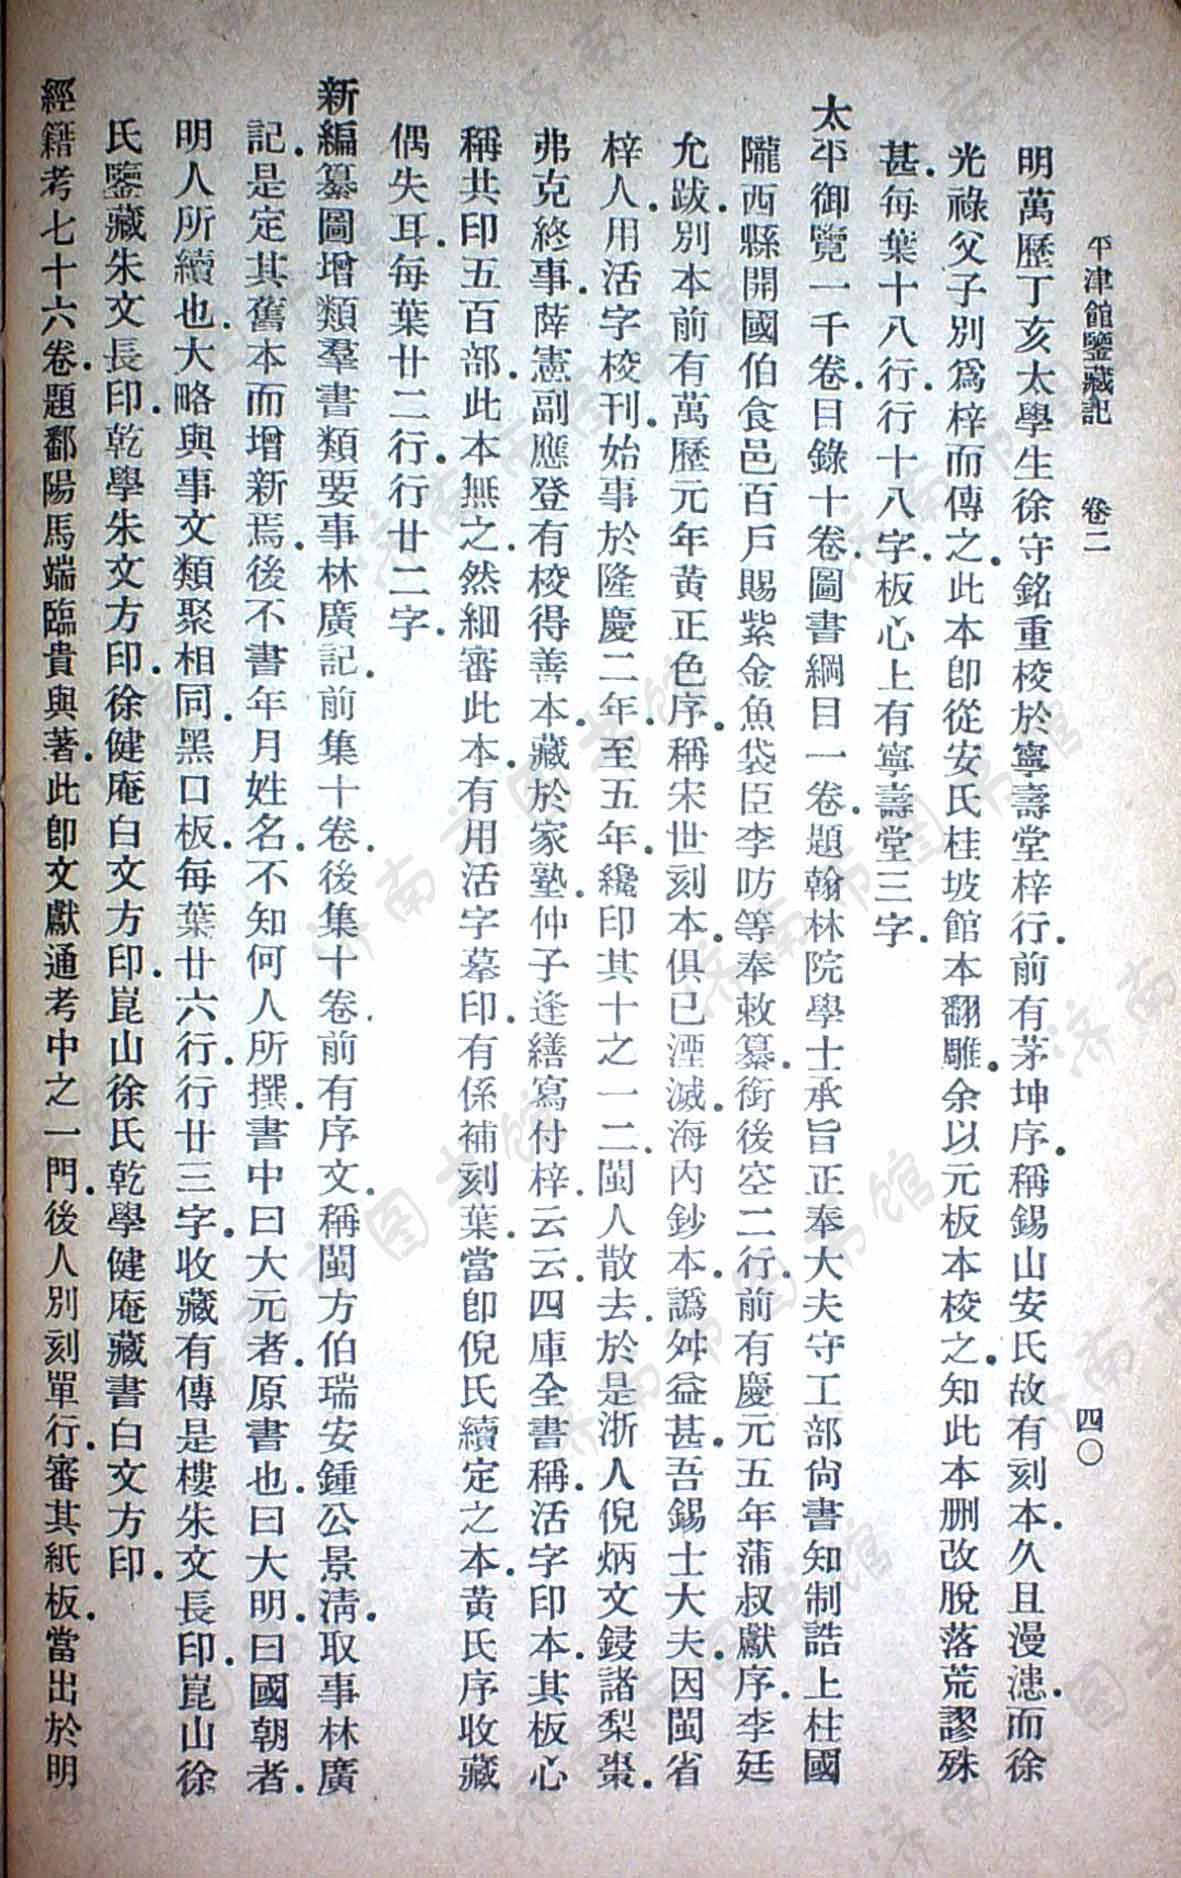 平津館鑒藏記　卷二　四〇
明萬歷丁亥太學生徐守銘重校於寧壽堂梓行．前有茅坤序．稱錫山安氏故有刻本．久且漫漶．而徐
光祿父子別爲梓而傳之．此本卽從安氏桂坡館本翻雕．余以元板本校之．知此本刪改脫落荒謬殊
甚．每葉十八行．行十八字．板心上有寧壽堂三字．
太平御覽一千卷．目錄十卷．圖書綱目一卷．題翰林院學士承旨正奉大夫守工部尙書知制誥上柱國
隴西縣開國伯食邑百戶賜紫金魚袋臣李昉等奉敕纂．銜後空二行．前有慶元五年蒲叔獻序．李廷
允跋．別本前有萬歷元年黃正色序．稱宋世刻本．俱已湮滅．海內鈔本．譌舛益甚．吾錫士大夫．因閩省
梓人．用活字校刊．始事於隆慶二年．至五年．纔印其十之一二．閩人散去．於是浙人倪炳文鋟諸梨棗．
弗克終事．薛憲副應登有校得善本．藏於家塾．仲子逢繕寫付梓．云云．四庫全書稱．活字印本．其板心
稱共印五百部．此本無之．然細審此本．有用活字摹印．有係補刻葉．當卽倪氏續定之本．黃氏序收藏
偶失耳．每葉廿二行．行廿二字．
新編纂圖增類羣書類要事林廣記．前集十卷．後集十卷．前有序文．稱閩方伯瑞安鍾公景淸．取事林廣
記．是定其舊本而增新焉．後不書年月姓名．不知何人所撰．書中曰大元者．原書也．曰大明．曰國朝者．
明人所續也．大略與事文類聚相同．黑口板．每葉廿六行．行廿三字．收藏有傳是樓朱文長印．崑山徐
氏鑒藏朱文長印．乾學朱文方印．徐健庵白文方印．崑山徐氏乾學健庵藏書白文方印．
經籍考七十六卷．題鄱陽馬端臨貴與著．此卽文獻通考中之一門．後人別刻單行．審其紙板．當出於明